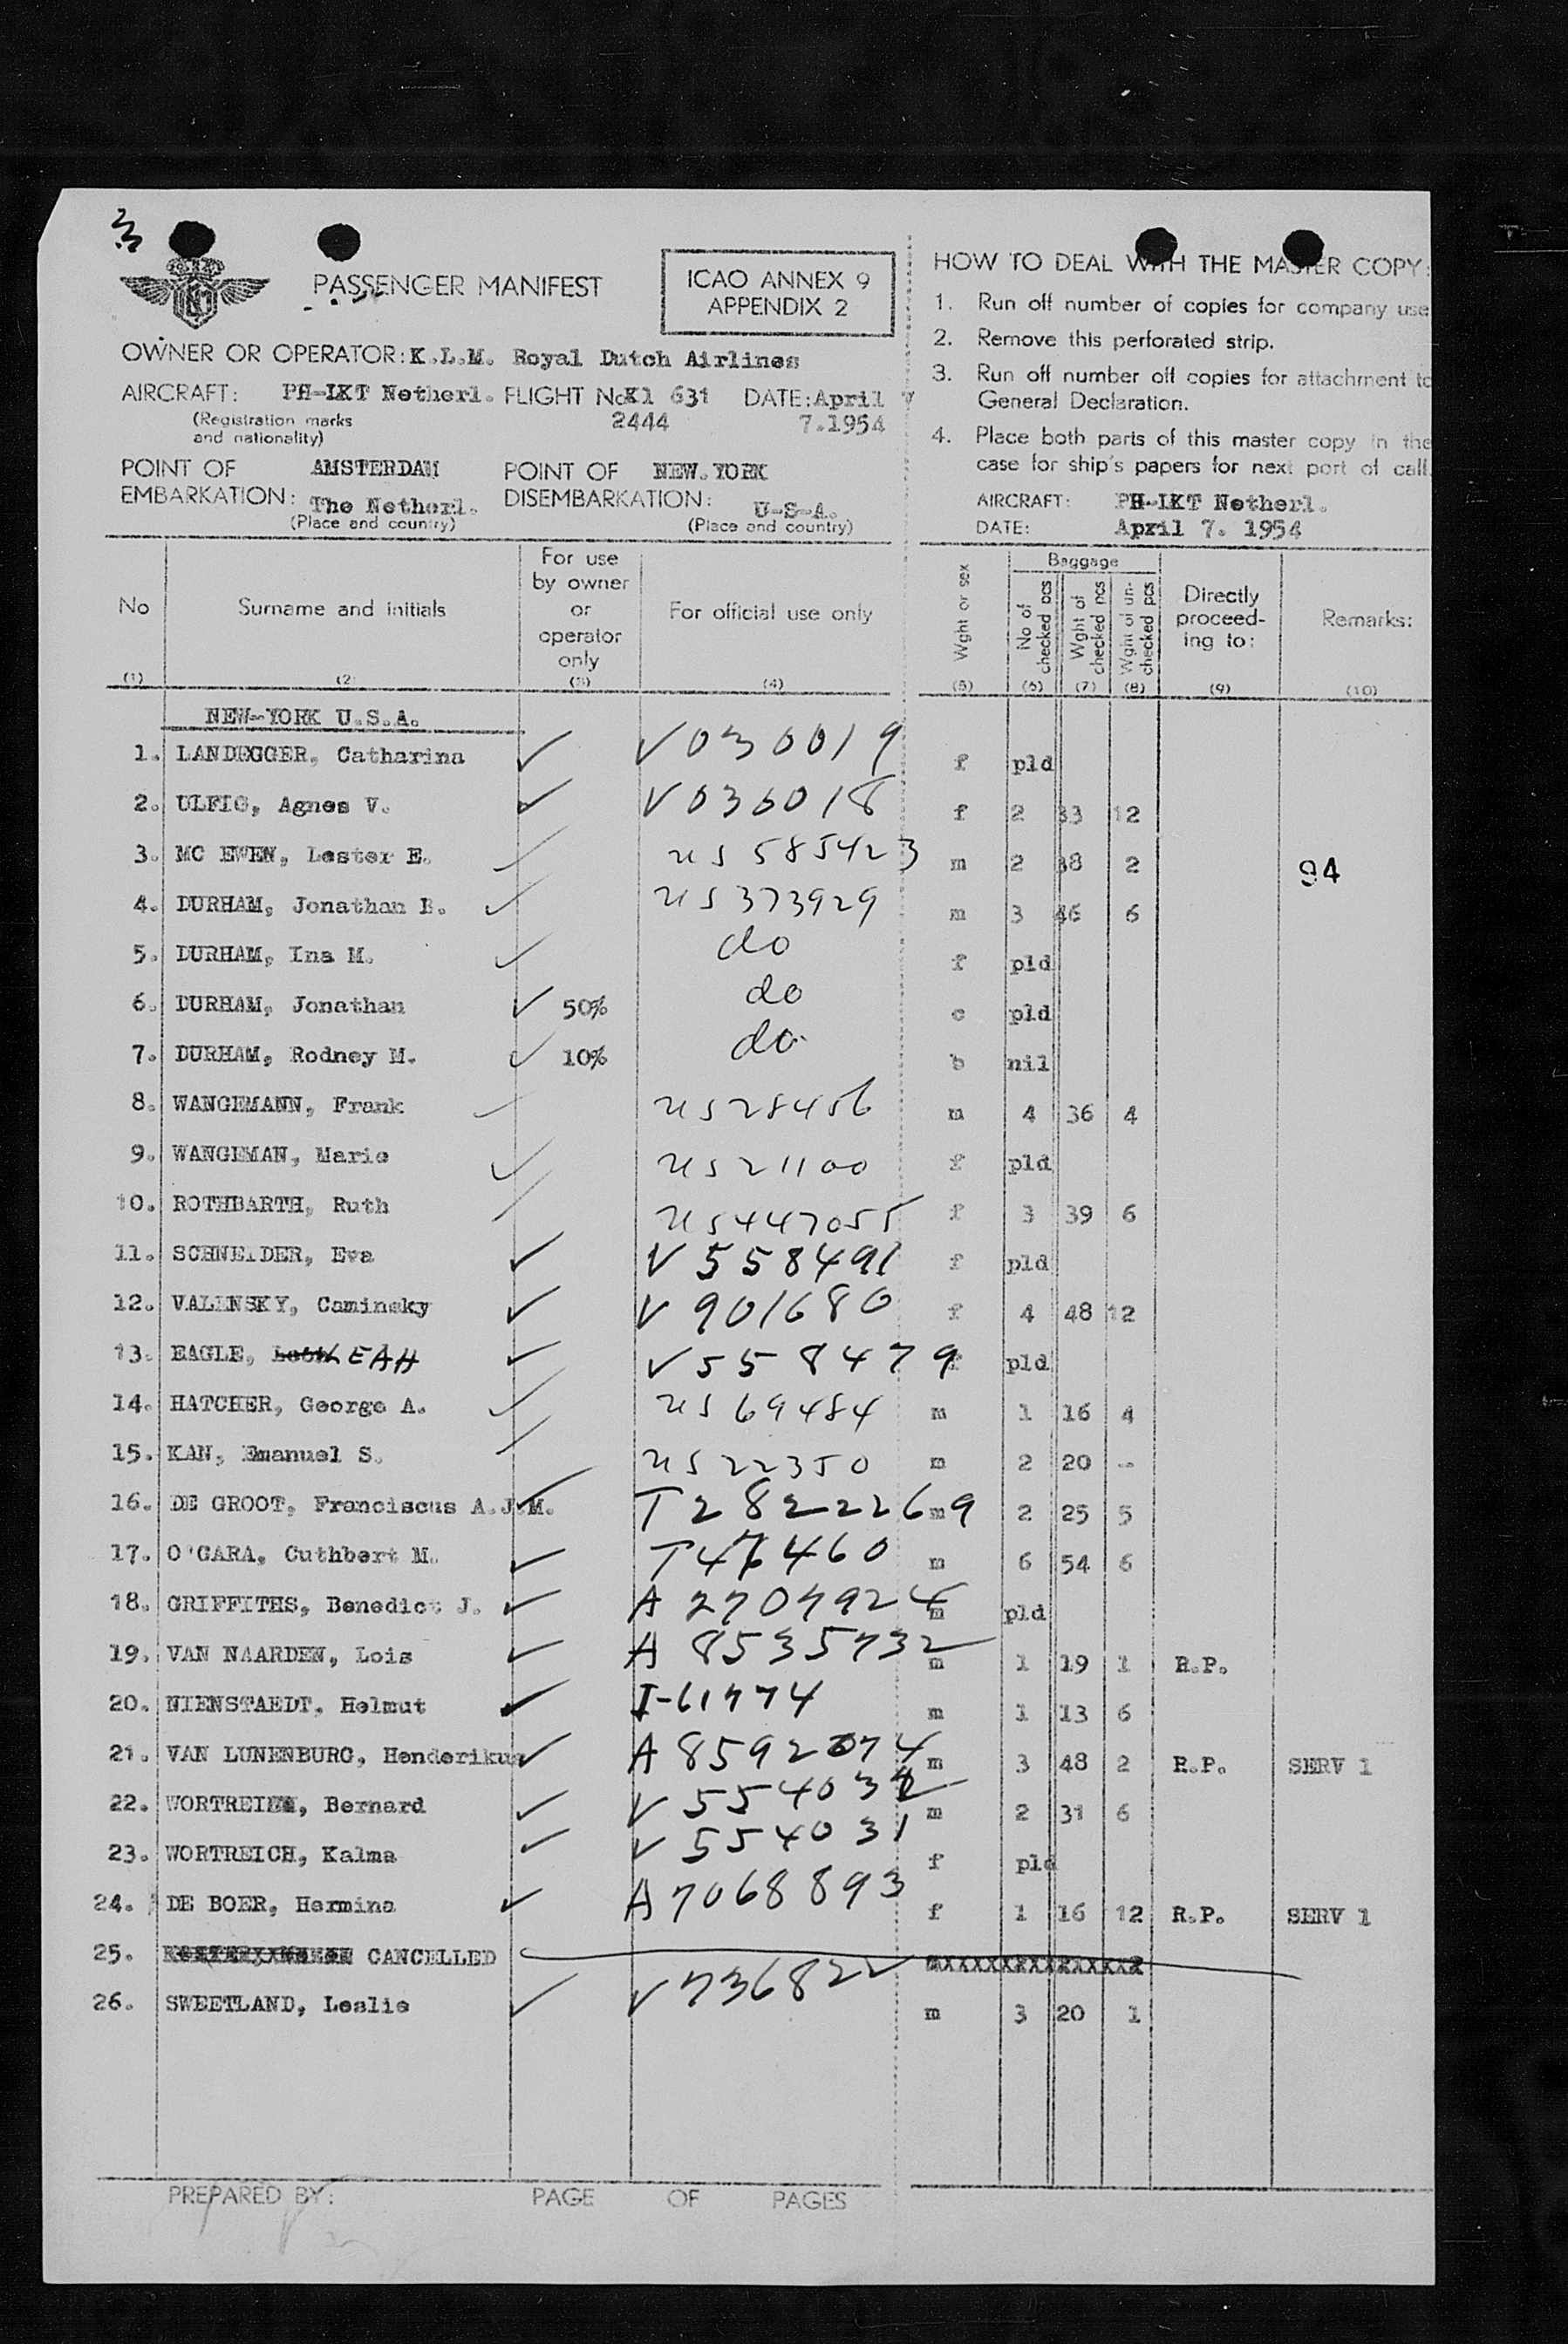 3
PASSENGER MANIFEST
ICAO ANNEX 9
APPENDIX 2
OWNER OR OPERATOR: K.L.M. Royal Dutch Airlines
AIRCRAFT: PH-LKT Netherl. FLIGHT No Kl 631 DATE: April 7
(Registration marks and nationality) 2444 7.1954
POINT OF EMBARKATION: AMSTERDAM The Netherl. (Place and country)
POINT OF DISEMBARKATION: NEW.YORK U-S-A. (Place and country)
HOW TO DEAL WITH THE MASTER COPY:
1. Run off number of copies for company use
2. Remove this perforated strip.
3. Run off number off copies for attachment to
General Declaration.
4. Place both parts of this master copy in the
case for ship's papers for next port of call.
AIRCRAFT: PH-LKT Netherl.
DATE: April 7. 1954
No (1) Surname and initials (2) For use by owner or operator only (3) For official use only (4) Wght or sex (5) Baggage No of checked pcs (6) Wght of checked pcs (7) Wght of un-checked pcs (8) Directly proceed-ing to: (9) Remarks: (10)
NEW-YORK U.S.A.
1. LANDEGGER, Catharina ✓ V030019 f pld
2. ULFIG, Agnes V. ✓ V030018 f 2 33 12
3. MC EWEN, Lester E. ✓ US 585423 m 2 38 2 94
4. DURHAM, Jonathan B. ✓ US 373929 m 3 46 6
5. DURHAM, Ina M. ✓ do f pld
6. DURHAM, Jonathan ✓ 50% do c pld
7. DURHAM, Rodney M. ✓ 10% do b nil
8. WANGEMANN, Frank ✓ US 28456 m 4 36 4
9. WANGEMAN, Marie ✓ US 21100 f pld
10. ROTHBARTH, Ruth ✓ US 447055 f 3 39 6
11. SCHNEIDER, Eva ✓ V 558491 f pld
12. VALENSKY, Caminsky ✓ V 901680 f 4 48 12
13. EAGLE, LEAH ✓ V558479 f pld
14. HATCHER, George A. ✓ US 69484 m 1 16 4
15. KAN, Emanuel S. ✓ US 22350 m 2 20 -
16. DE GROOT, Franciscus A.J.M. ✓ T2822269 m 2 25 5
17. O'GARA, Cuthbert M. ✓ m 6 54 6
18. GRIFFITHS, Benedict J. ✓ A 2707924 m pld
19. VAN NAARDEN, Lois ✓ A 8535732 m 1 19 1 R.P.
20. NIENSTAEDT, Helmut ✓ I-61774 m 1 13 6
21. VAN LUNENBURG, Henderikus ✓ A 8592074 m 3 48 2 R.P. SERV 1
22. Bernard ✓ V 554032 m 2 31 6
23. WORTREICH, Kalma ✓ V 554031 f pld
24. DE BOER, Hermina ✓ A7068893 f 1 16 12 R.P. SERV 1
25. CANCELLED
26. SWEETLAND, Leslie ✓ V736822 m 3 20 1
PREPARED BY: PAGE OF PAGES